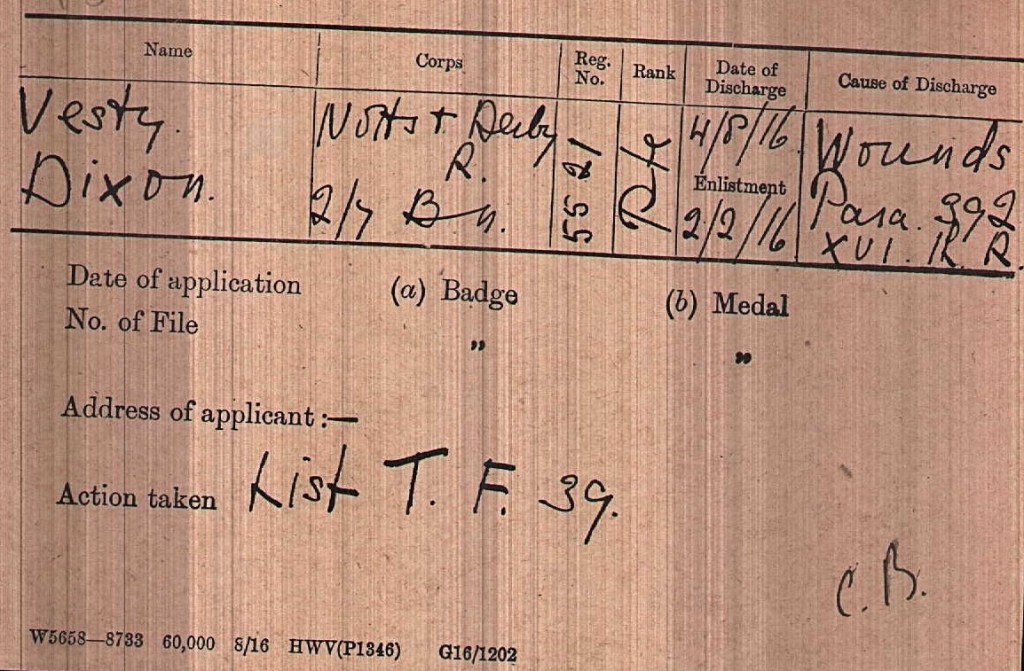 Name Corps Reg. No. Rank Date of Discharge Cause of Discharge
Vesty. Notts + Derby 5521 Pte 4/8/16 Wounds
Dixon. R. Enlistment Para. 392
2/7 Bn. 2/2/16 XVI. K. R.
Date of application (a) Badge (b) Medal
No. of File " "
Address of applicant :—
Action taken List T. F. 39.
C. B.
W5658—8733 60,000 8/16 HWV(P1346) G16/1202